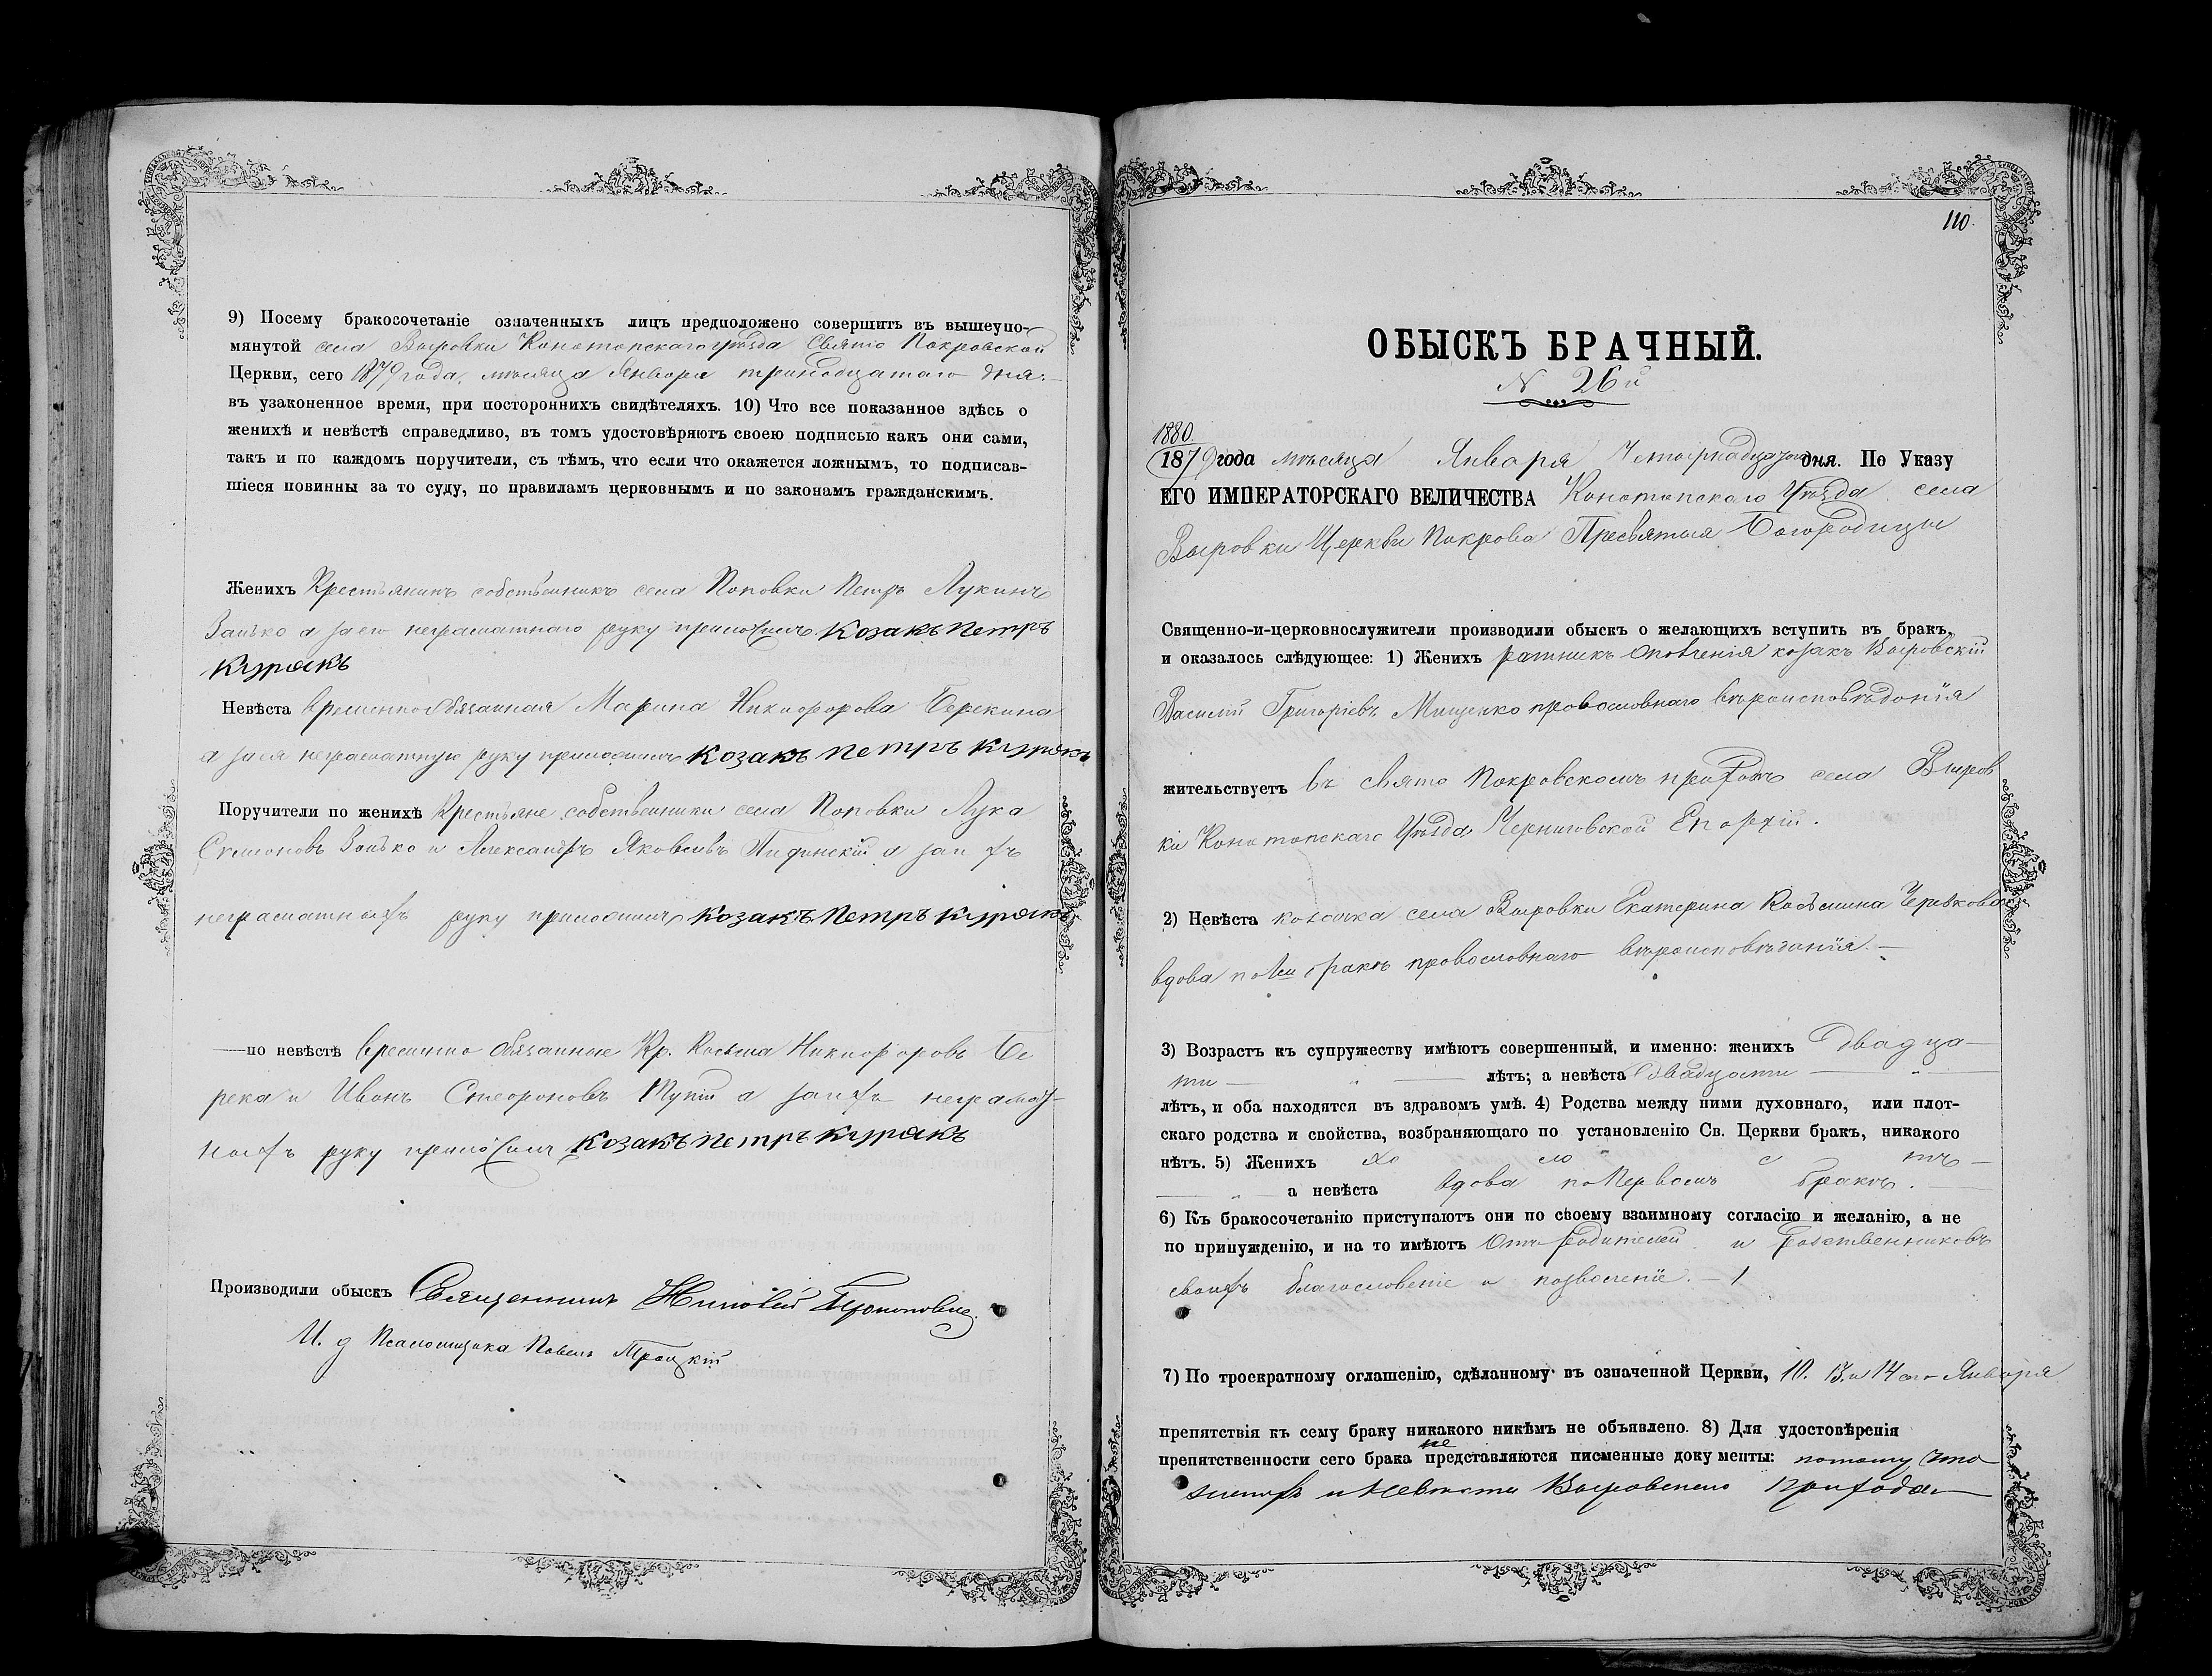 9) Посему бракосочетаніе означенныхъ лицъ предположено совершить въ вышеупо-
мянутой села Выровки Конотопскаго уѣзда Свято Покровской
Церкви, сего 1879 года, мѣсяца Января тринадцатаго дня.
въ узаконенное время, при постороннихъ свидѣтеляхъ. 10) Что все показанное здѣсь о
женихѣ и невѣстѣ справедливо, въ томъ удостовѣряютъ своею подписью какъ они сами,
такъ и по каждомъ поручители, съ тѣмъ, что если что окажется ложнымъ, то подписав-
шіеся повинны за то суду, по правиламъ церковнымъ и по законамъ гражданскимъ.
Женихъ Крестьянинъ собственникъ села Поповки Петръ Лукинъ
а за его неграматнаго руку приложилъ Козакъ Петръ
Курякъ
Невѣста временнообязанная Марина Никифорова Берекина
а за ея неграматную руку приложилъ Козакъ Петръ Курякъ
Поручители по женихѣ Крестьяне собственники села Поповки Лука
Семоновъ и Александръ Яковлевъ а за ихъ
неграматныхъ руку приложилъ Козакъ Петръ Курякъ
—по невѣстѣ временно обязанные Кр. Косьма Никифоровъ Бе
река и Иванъ а за ихъ неграмот-
ныхъ руку приложилъ Козакъ Петръ Курякъ
Производили обыскъ Священникъ
И. д Псаломщика Павелъ Троцкій
110.
ОБЫСКЪ БРАЧНЫЙ.
N 26й
1880.
1879 года мѣсяца Января Четырнадцатаго дня. По Указу
ЕГО ИМПЕРАТОРСКАГО ВЕЛИЧЕСТВА Конотопскаго Уѣзда села
Выровки Церкви Покрова Пресвятыя Богородицы
Священно-и-церковнослужители производили обыскъ о желающихъ вступить въ бракъ,
и оказалось слѣдующее: 1) Женихъ ратникъ ополченія козакъ Выровскій
Василій Григоріевъ Мищенко провословнаго вѣроисповѣдонія
жительствуетъ въ свято Покровскомъ приходѣ села Выров
ки Конотопскаго Уѣзда Черниговской Епархіи.
2) Невѣста козачка села Выровки Екатерина Косьмина
вдова по 1мъ бракѣ провословнаго вѣроисповѣданія.—
3) Возрастъ къ супружеству имѣютъ совершенный, и именно: женихъ Двадца-
ти — лѣтъ; а невѣста Двадцати —
лѣтъ, и оба находятся въ здравомъ умѣ. 4) Родства между ними духовнаго, или плот-
скаго родства и свойства, возбраняющаго по установленію Св. Церкви бракъ, никакого
нѣтъ. 5) Женихъ хо ло с тъ —
а невѣста вдова по Первомъ бракѣ.
6) Къ бракосочетанію приступаютъ они по своему взаимному согласію и желанію, а не
по принужденію, и на то имѣютъ Отъ Родителей и родственниковъ
своихъ благословеніе и позволеніе.—
7) По троекратному оглашенію, сдѣланному въ означенной Церкви, 10. 13. и 14 ого Января
препятствія къ сему браку никакого никѣмъ не объявлено. 8) Для удостовѣренія
препятственности сего брака не представляются писменные документы: потому что
женихъ и Невѣста Выровскаго Прихода.—